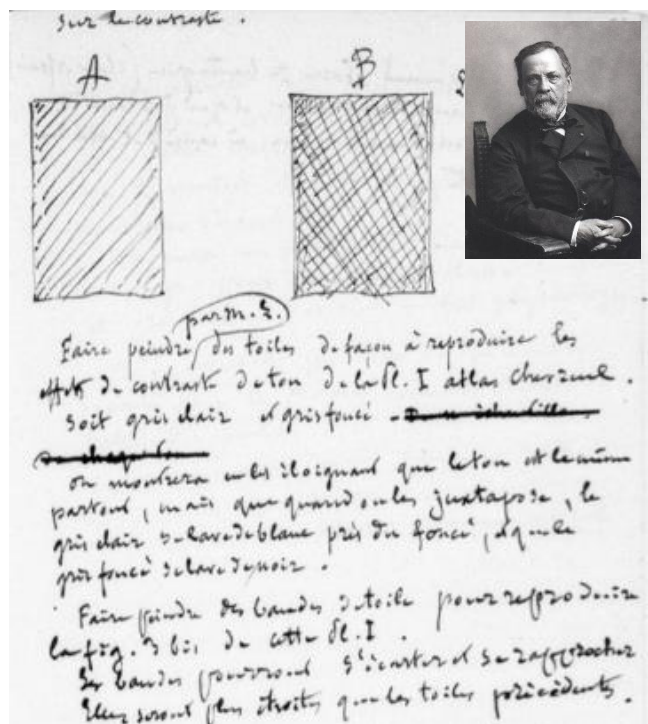 Sur le contraste.
A B
par M. E.
Faire peindre des toiles de façon à reproduire les
effets de contraste de ton de la Pl. I atlas Chevreul.
Soit gris clair et gris foncé
on montrera en les éloignant que le ton est le même
partout, mais que quand on les juxtapose, le
gris clair se lave de blanc près du foncé, et que le
gris foncé se lave de noir.
Faire peindre des bandes de toile pour reproduire
la fig. 3 bis de cette Pl. I.
Les bandes pourront s'écarter et se rapprocher
Elles seront plus étroites que les toiles précédentes.